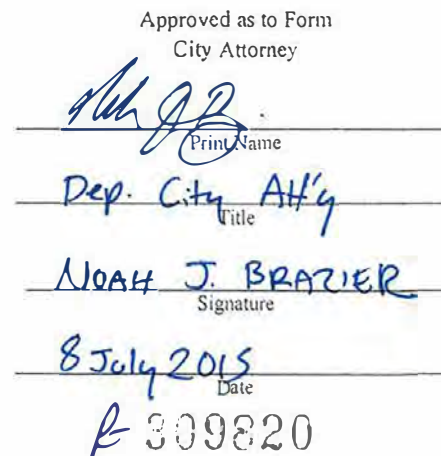 Approved as to Form
City Attorney
Print Name
Dep. City Att'y
Title
NOAH J. BRAZIER
Signature
8 July 2015
Date
R- 309820